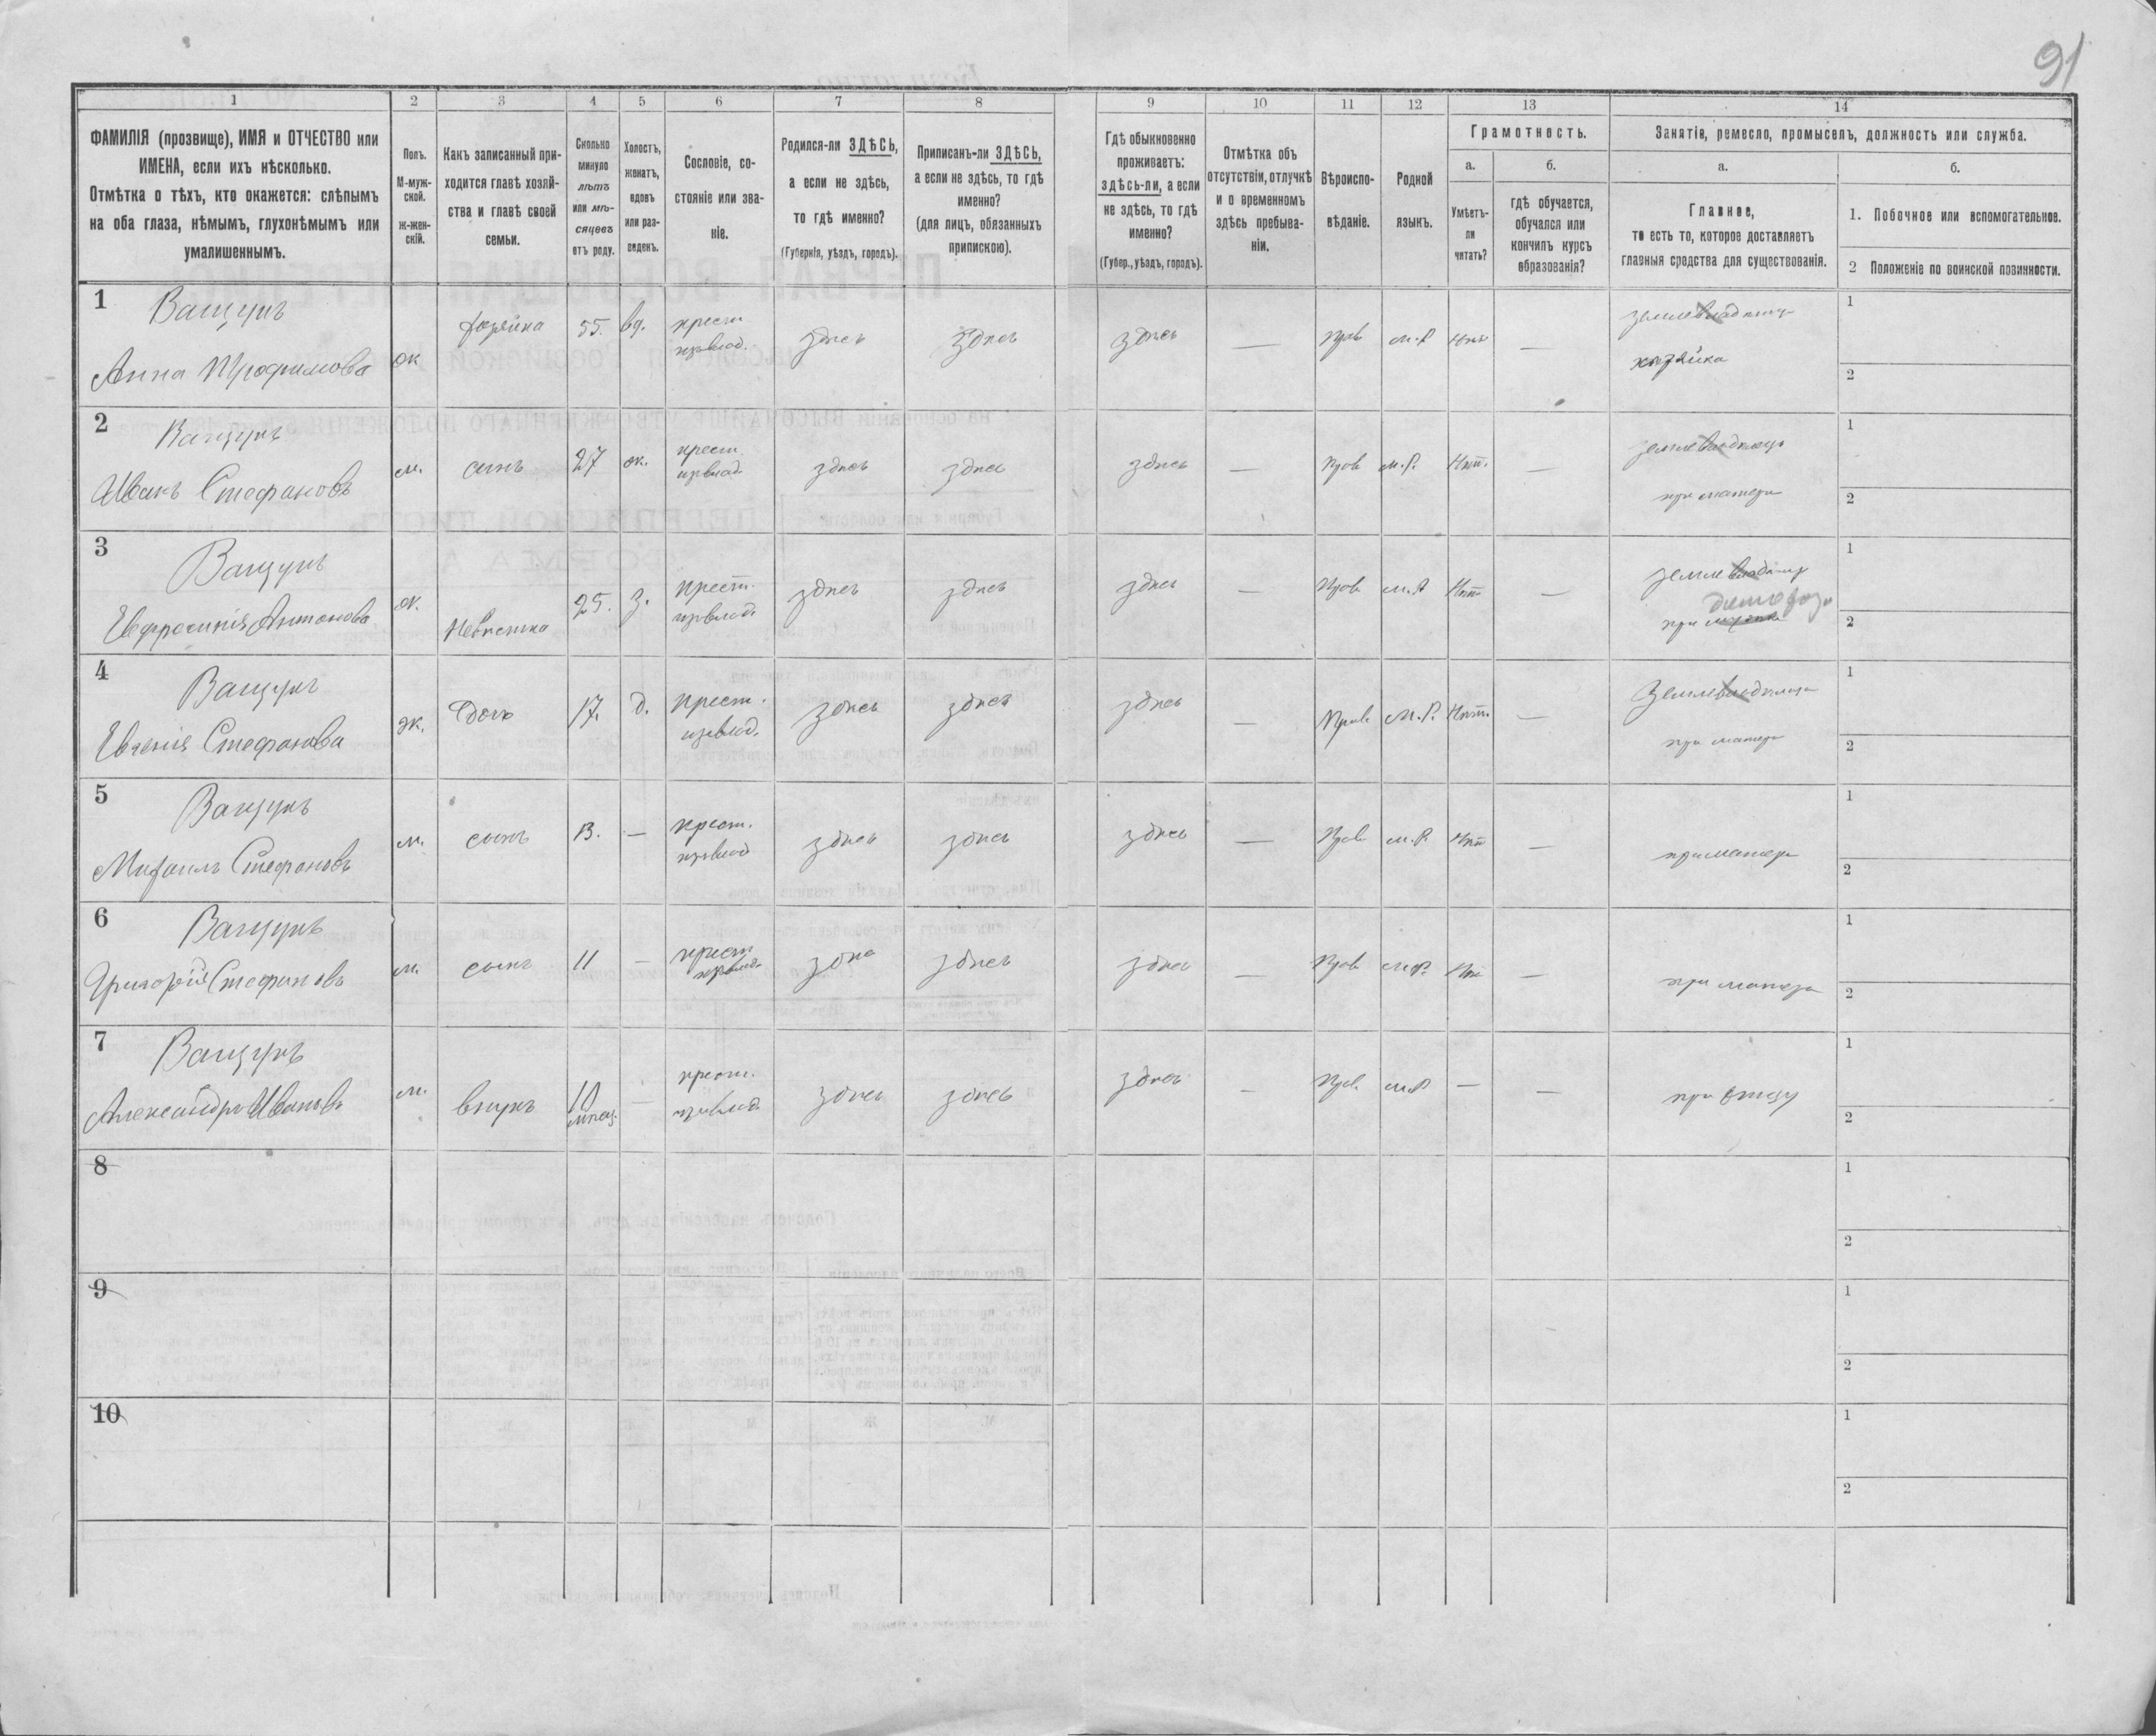 91
1 2 3 4 5 6 7 8 9 10 11 12 13 14
ФАМИЛІЯ (прозвище), ИМЯ и ОТЧЕСТВО или
ИМЕНА, если ихъ нѣсколько.
Отмѣтка о тѣхъ, кто окажется: слѣпымъ
на оба глаза, нѣмымъ, глухонѣмымъ или
умалишеннымъ.
Полъ.
М-муж-
ской.
ж-жен-
скій.
Какъ записанный при-
ходится главѣ хозяй-
ства и главѣ своей
семьи.
Сколько
минуло
лѣтъ
или мѣ-
сяцевъ
отъ роду.
Холостъ,
женатъ,
вдовъ
или раз-
веденъ.
Сословіе, со-
стояніе или зва-
ніе.
Родился-ли ЗДѢСЬ,
а если не здѣсь,
то гдѣ именно?
(Губернія, уѣздъ, городъ).
Приписанъ-ли ЗДѢСЬ,
а если не здѣсь, то гдѣ
именно?
(для лицъ, обязанныхъ
припискою).
Гдѣ обыкновенно
проживаетъ:
здѣсь-ли, а если
не здѣсь, то гдѣ
именно?
(Губер., уѣздъ, городъ).
Отмѣтка объ
отсутствіи, отлучкѣ
и о временномъ
здѣсь пребыва-
ніи.
Вѣроиспо-
вѣданіе.
Родной
языкъ.
Грамотность.
а.
Умѣетъ-
ли
читать?
б.
гдѣ обучается,
обучался или
кончилъ курсъ
образованія?
Занятіе, ремесло, промыселъ, должность или служба.
а.
Главное,
то есть то, которое доставляетъ
главныя средства для существованія.
б.
1. Побочное или вспомогательное.
2 Положеніе по воинской повинности.
1 Ващукъ
Анна Трофимова ж хозяйка 55. вд. крест. здѣсь здѣсь здѣсь — прав м.р — 1
хозяйка 2
2 Ващукъ
Иванъ Стефановъ м. сынъ 27 ж. крест. здѣсь здѣсь здѣсь — прав м.р. нѣт. — 1
при матери 2
3 Ващукъ
Евфросинія Антонова ж. невѣстка 25. з. крест. здѣсь здѣсь здѣсь — прав м.р нѣт — 1
при 2
4 Ващукъ
Евгенія Стефанова ж. дочь 17. д. крест. здѣсь здѣсь здѣсь — прав. м.р. нѣт. — 1
при матери 2
5 Ващукъ
Михаилъ Стефановъ м. сынъ 13. — крест. здѣсь здѣсь здѣсь — прав м.р. нѣт — 1
при матери 2
6 Ващукъ
Григорій Стефановъ м. сынъ 11 — крест здѣсь здѣсь здѣсь — прав м.р. нѣт — 1
при матери 2
7 Ващукъ
Александръ Ивановъ м. внукъ 10 мѣсяц. — крест. здѣсь здѣсь здѣсь — прав. м.р — — 1
при отцу 2
8 1
2
9 1
2
10 1
2